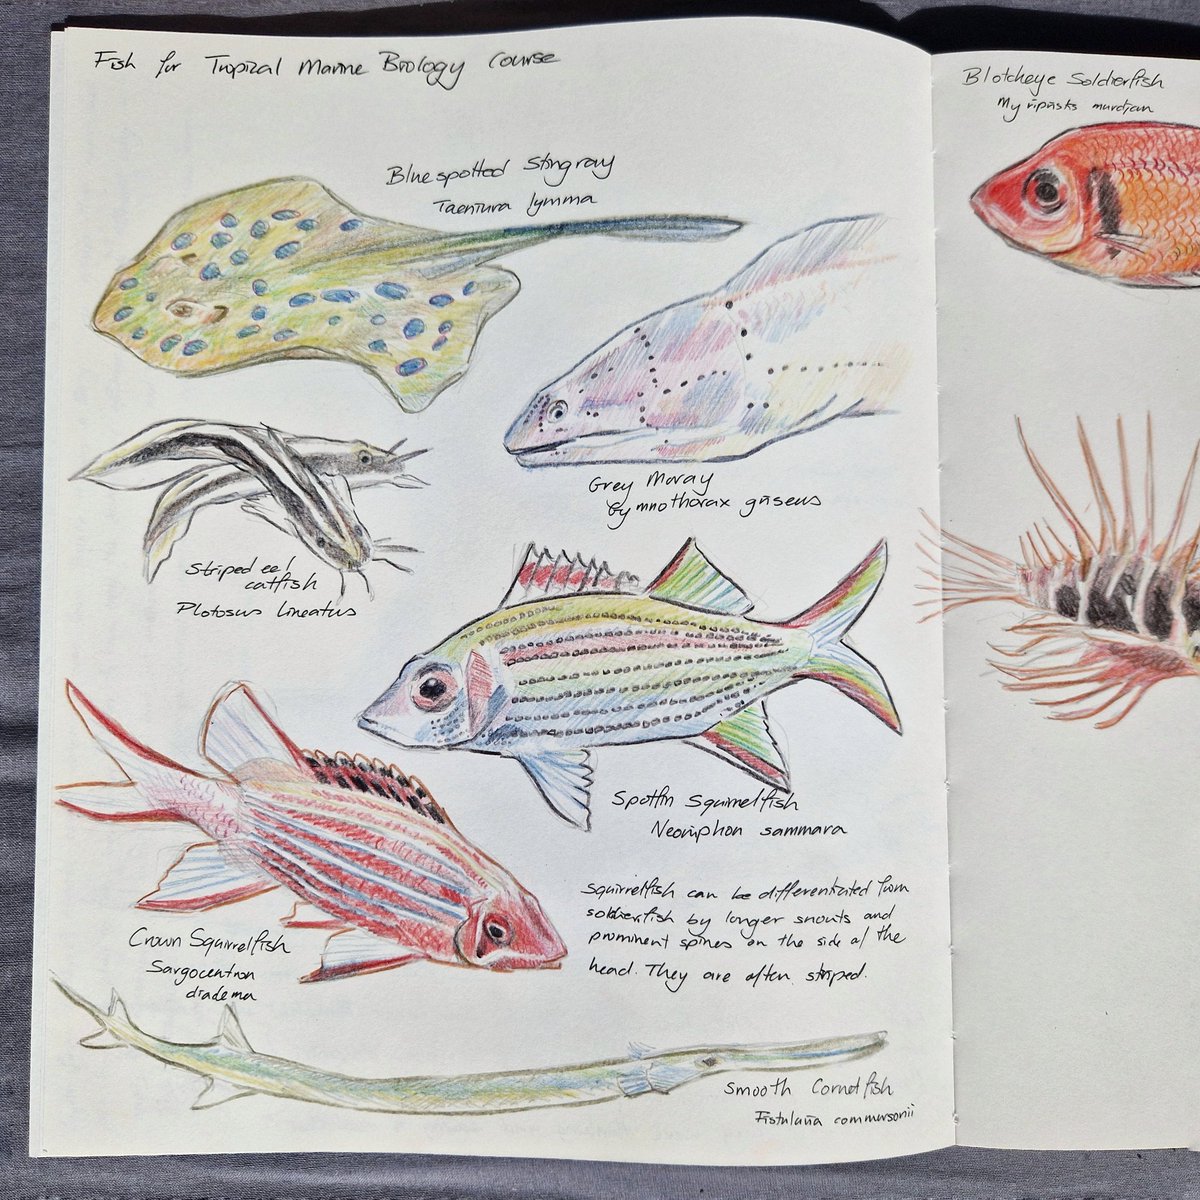 Fish for Tropical Marine Biology Course
Bluespotted Stingray
Taeniura lymma
Grey Moray
Gymnothorax griseus
Striped eel
catfish
Plotosus lineatus
Spotfin Squirrelfish
Neoniphon sammara
Squirrelfish can be differentiated from
soldierfish by longer snouts and
prominent spines on the side of the
head. They are often striped.
Crown Squirrelfish
Sargocentron
diadema
Smooth Cornetfish
Fistularia commersonii
Blotcheye Soldierfish
Myripristis murdjan